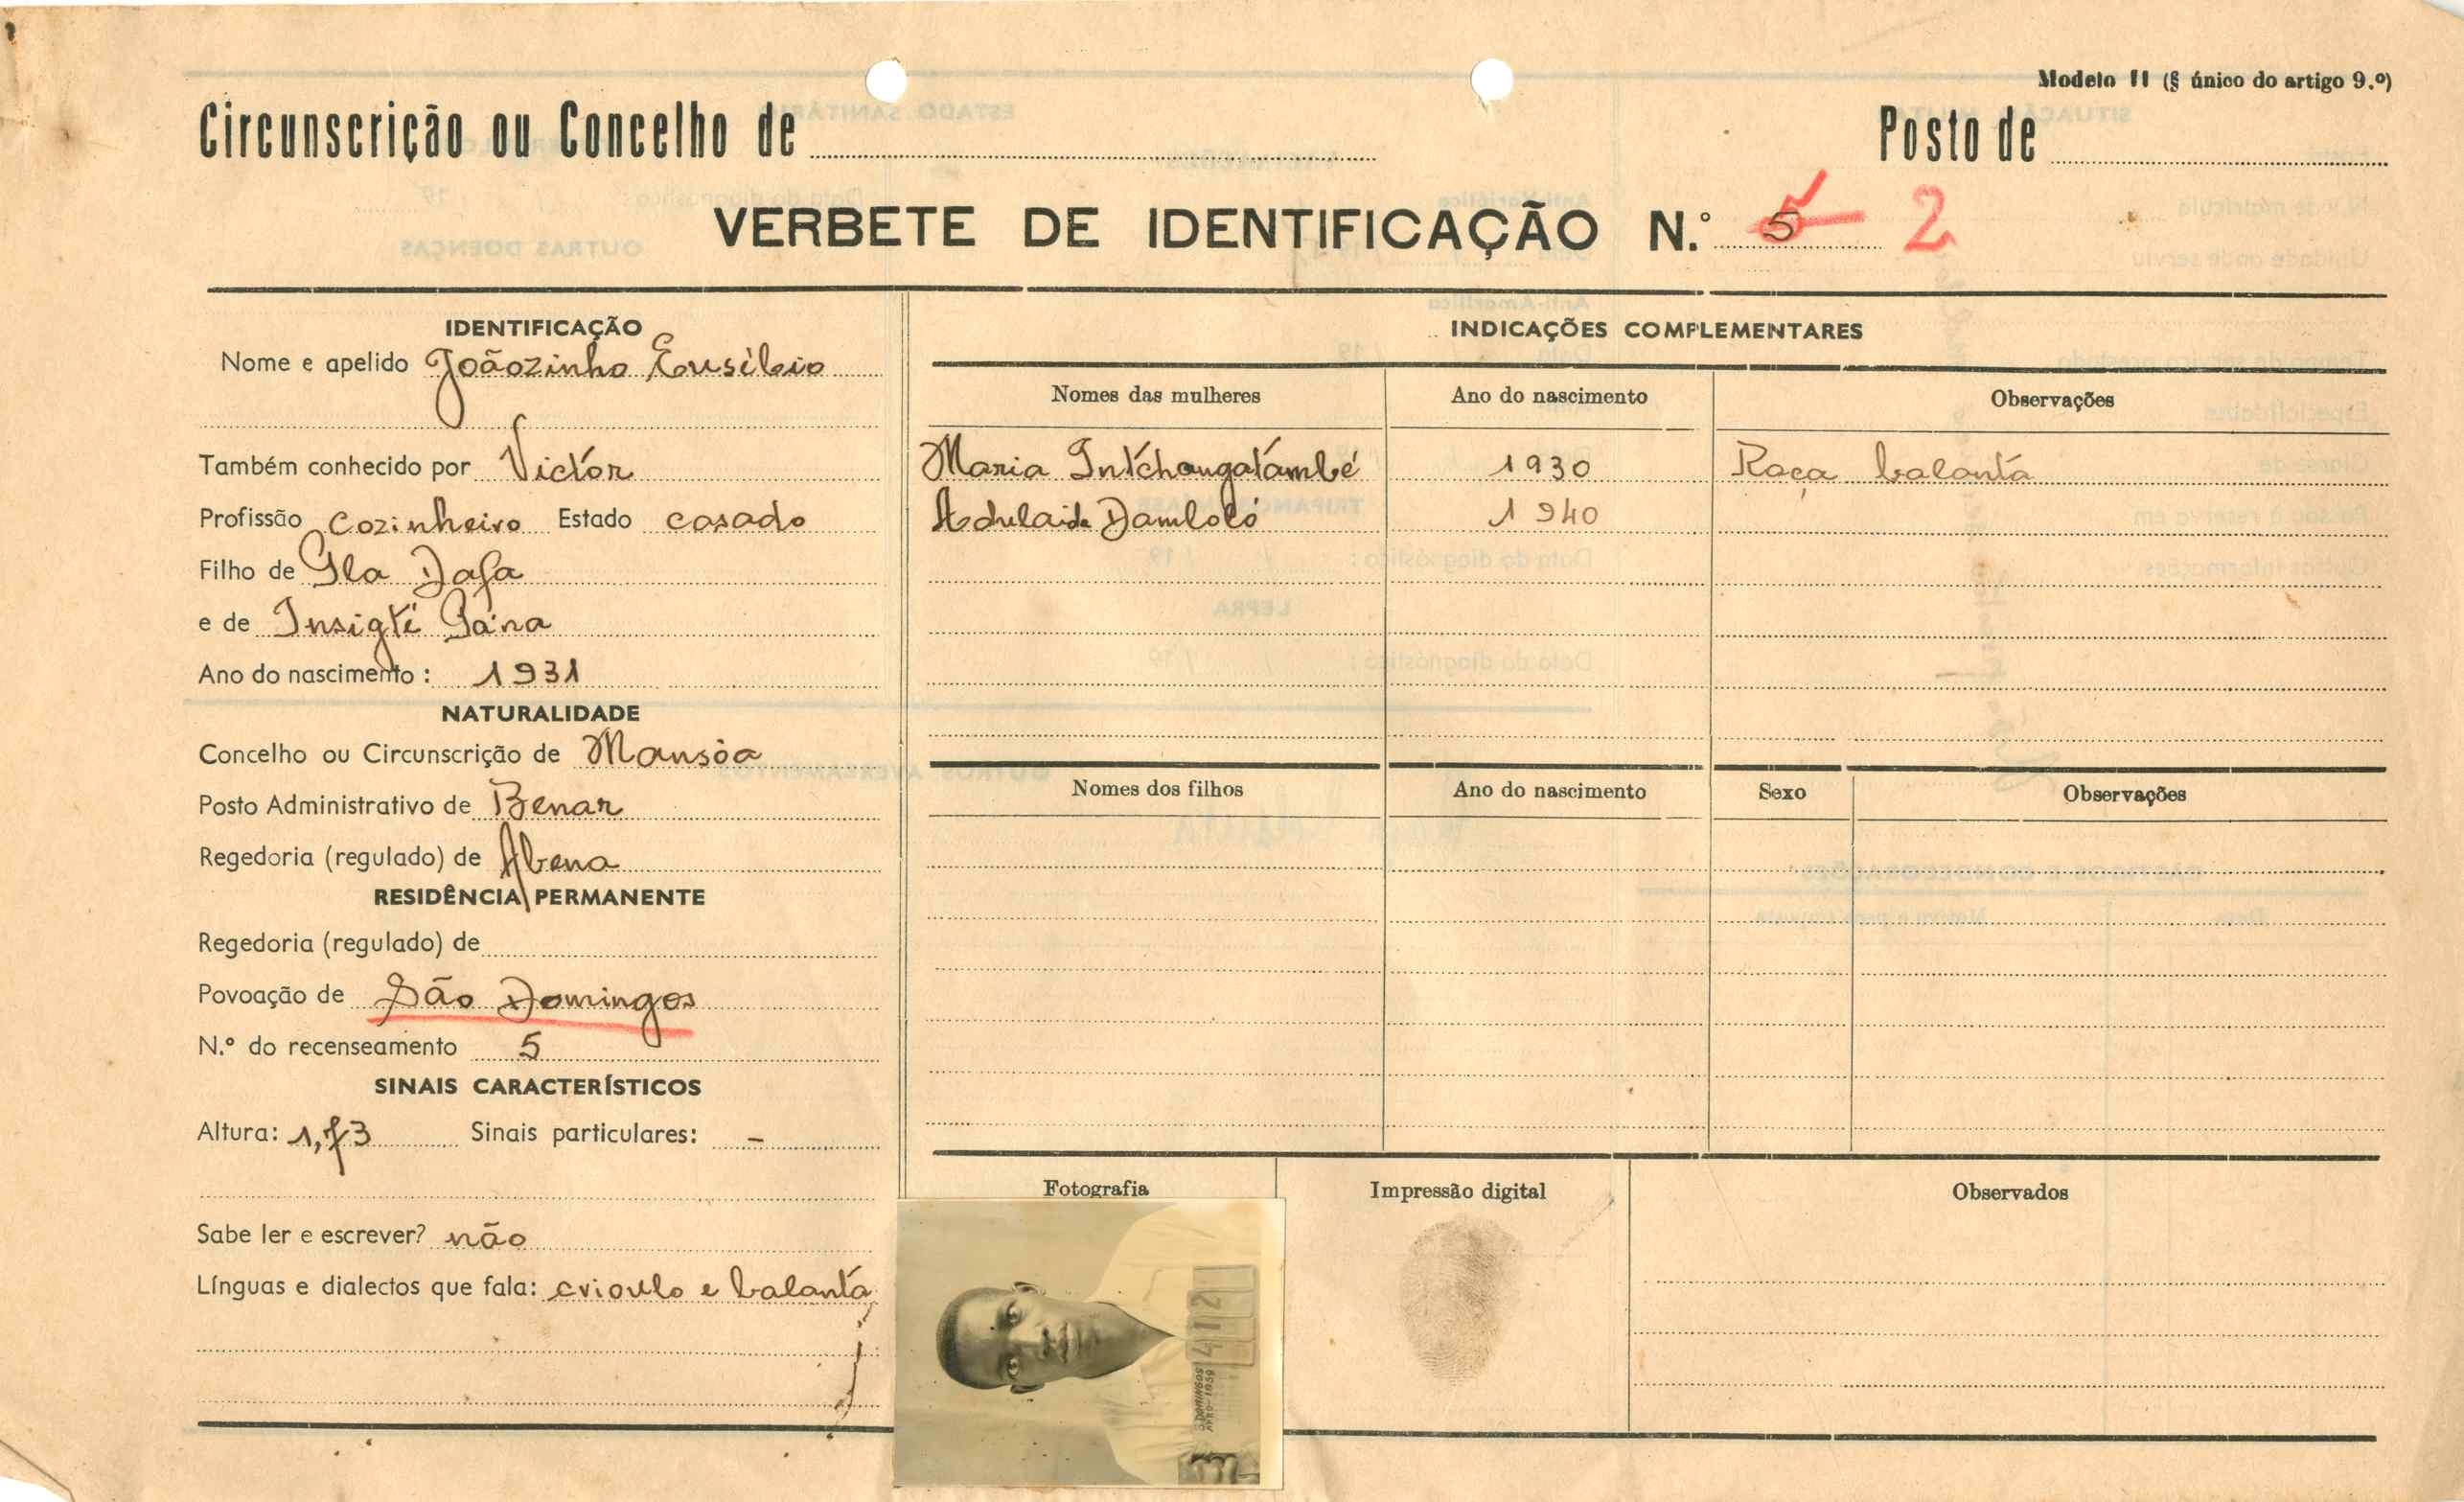 Modelo II (§ único do artigo 9.º)
Circunscrição ou Concelho de
Posto de
VERBETE DE IDENTIFICAÇÃO N.º 5 2
IDENTIFICAÇÃO
Nome e apelido Joãozinho Eusébio
Também conhecido por Victór
Profissão Cozinheiro Estado casado
Filho de Gla Dafa
e de Insigté Gána
Ano do nascimento : 1931
NATURALIDADE
Concelho ou Circunscrição de Mansôa
Posto Administrativo de Benar
Regedoria (regulado) de Abena
RESIDÊNCIA PERMANENTE
Regedoria (regulado) de
Povoação de São Domingos
N.º do recenseamento 5
SINAIS CARACTERÍSTICOS
Altura: 1,73 Sinais particulares: –
Sabe ler e escrever? não
Línguas e dialectos que fala: crioulo e balanta
INDICAÇÕES COMPLEMENTARES
Nomes das mulheres Ano do nascimento Observações
Maria Intchangatámbé 1930 Raça balanta
Adelaide Dambló 1940
Nomes dos filhos Ano do nascimento Sexo Observações
Fotografia Impressão digital Observados
412
S.DOMINGOS